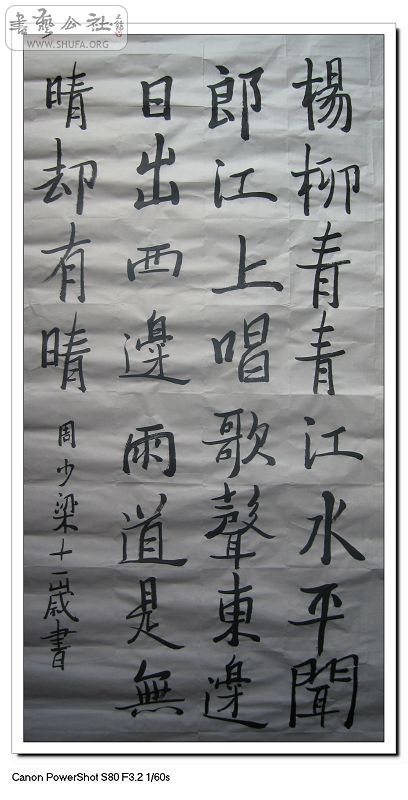 書藝公社
WWW.SHUFA.ORG
楊柳青青江水平聞
郎江上唱歌聲東邊
日出西邊雨道是無
晴却有晴
周少梁十一歲書
Canon PowerShot S80 F3.2 1/60s